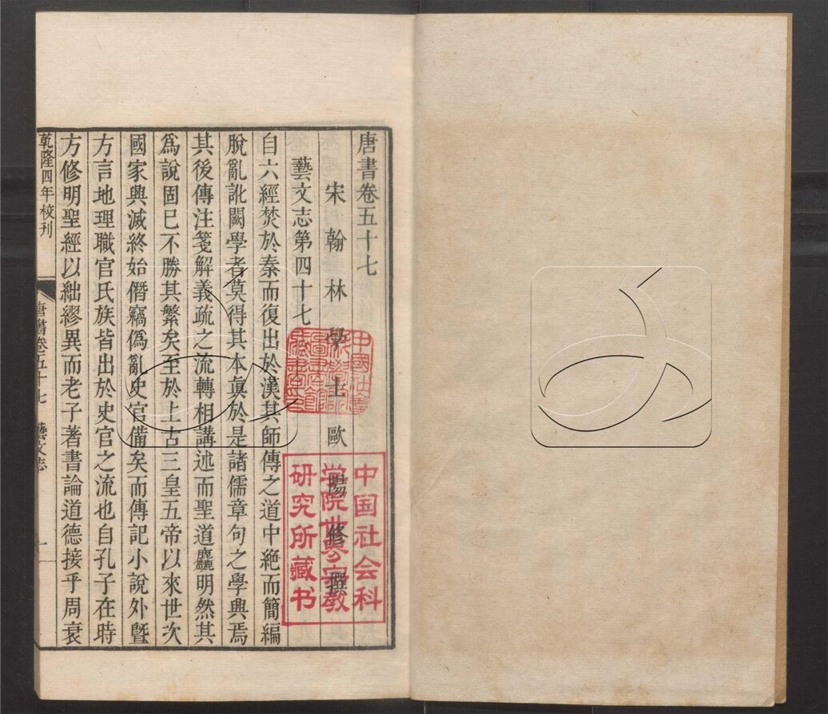 唐書卷五十七
宋翰林學士歐陽修撰
藝文志第四十七
自六經焚於秦而復出於漢其師傳之道中絶而簡編
脫亂訛闕學者莫得其本眞於是諸儒章句之學興焉
其後傳注箋解義疏之流轉相講述而聖道麤明然其
爲說固已不勝其繁矣至於上古三皇五帝以來世次
國家興滅終始僭竊僞亂史官備矣而傳記小說外曁
方言地理職官氏族皆出於史官之流也自孔子在時
方修明聖經以絀繆異而老子著書論道德接乎周衰
乾隆四年校刊
唐書卷五十七 藝文志 一
中國社會科學院圖書館藏書
中国社会科
学院世界宗教
研究所藏书